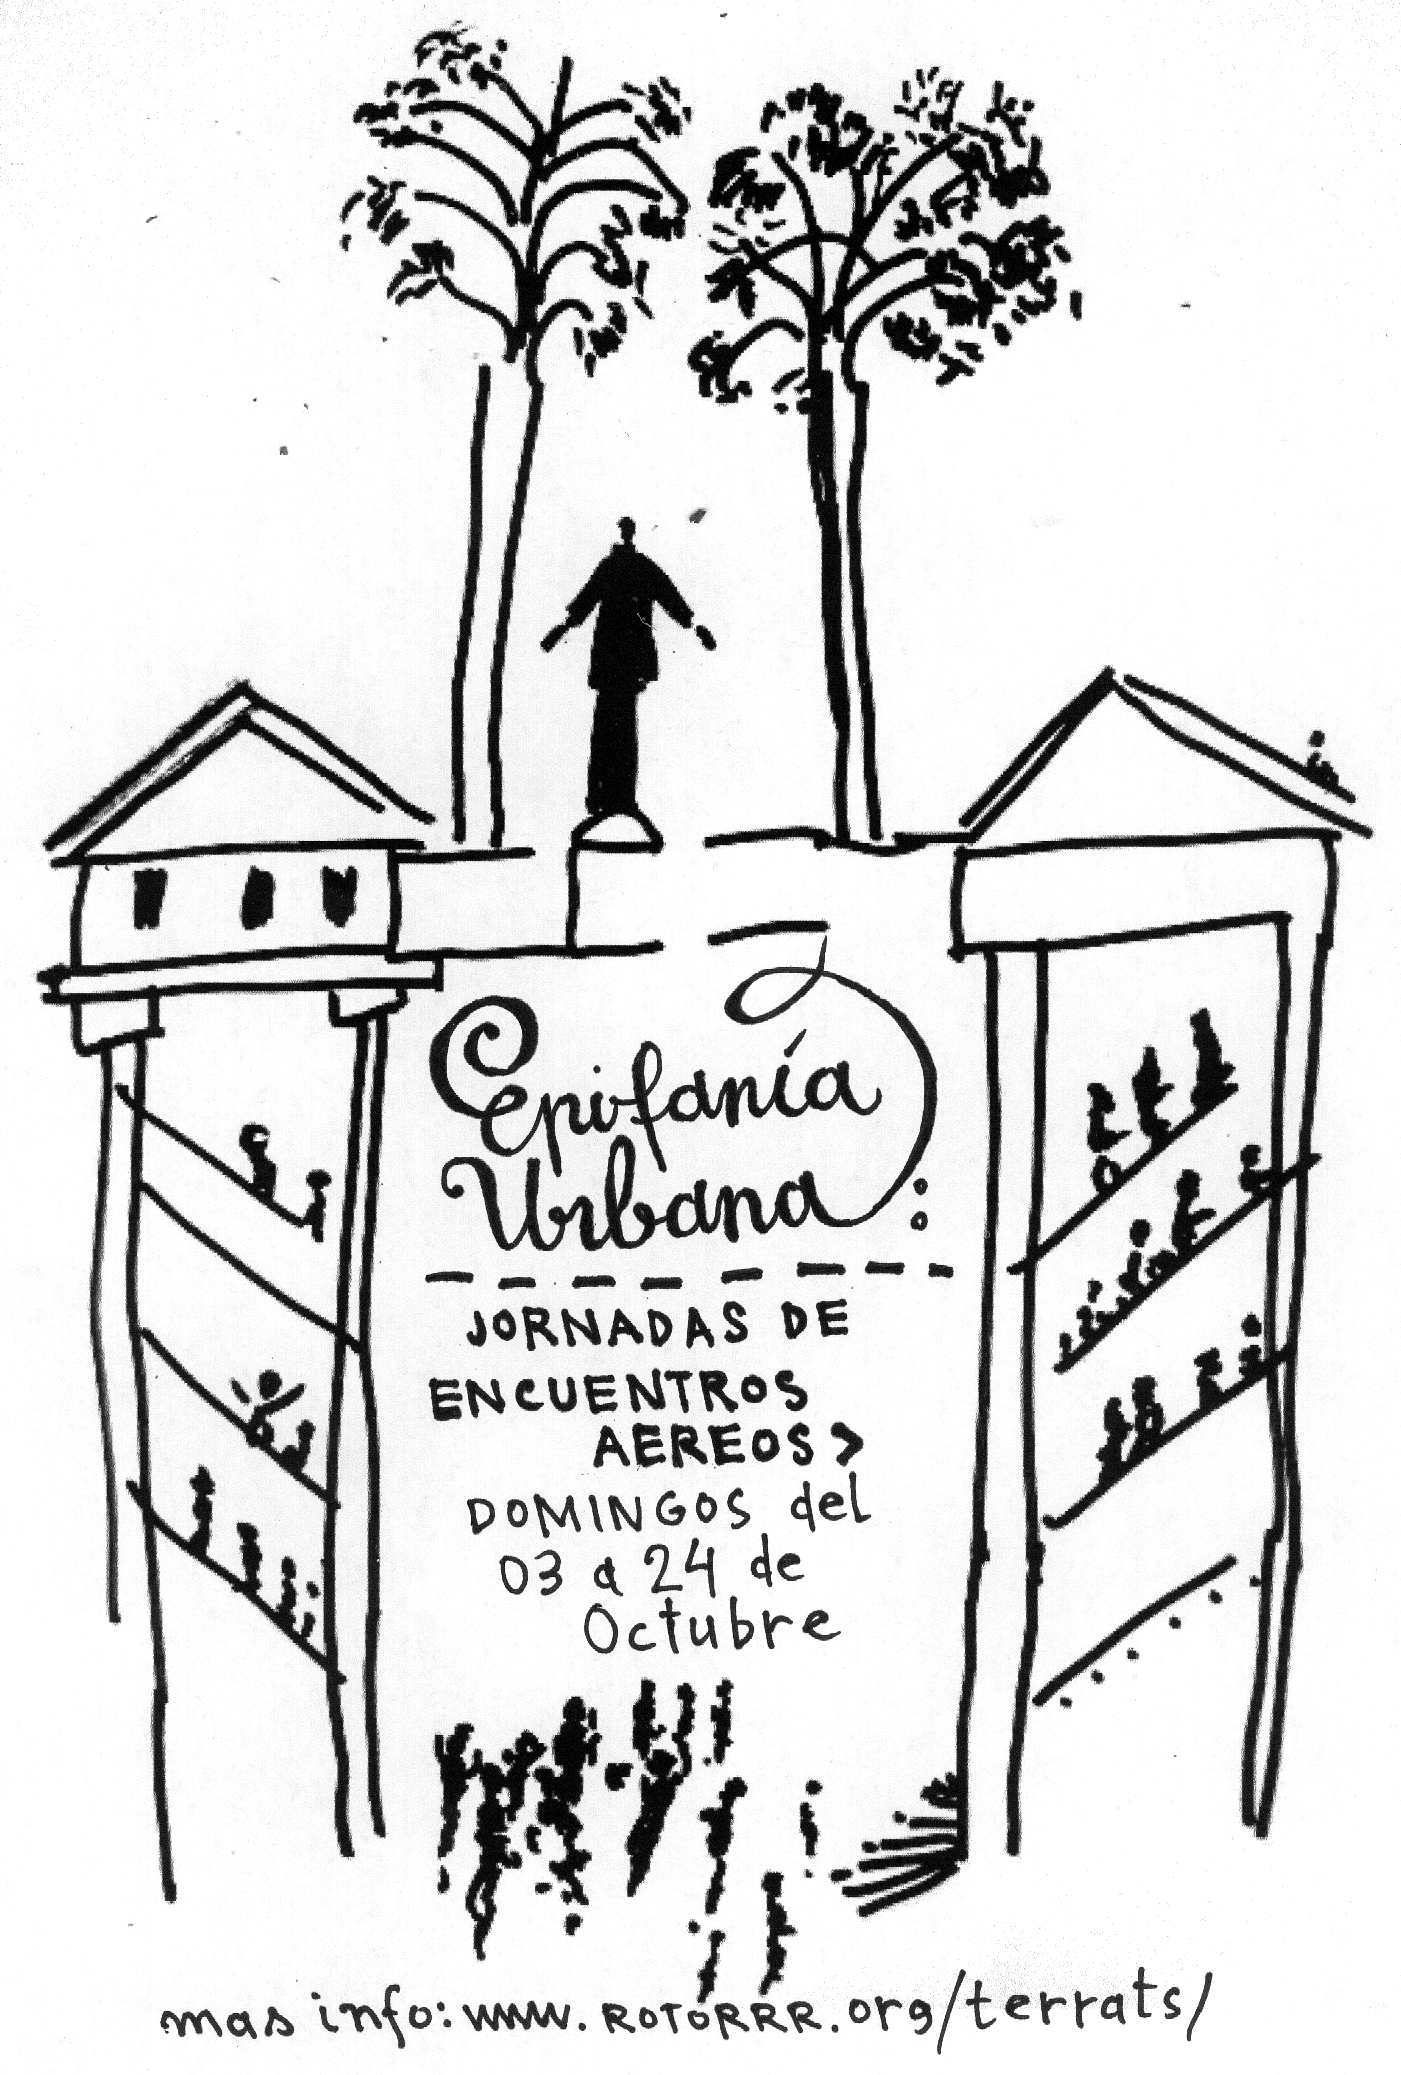 Epifanía
Urbana:
JORNADAS DE
ENCUENTROS
AEREOS >
DOMINGOS del
03 a 24 de
Octubre
mas info: www.ROTORRR.org/terrats/